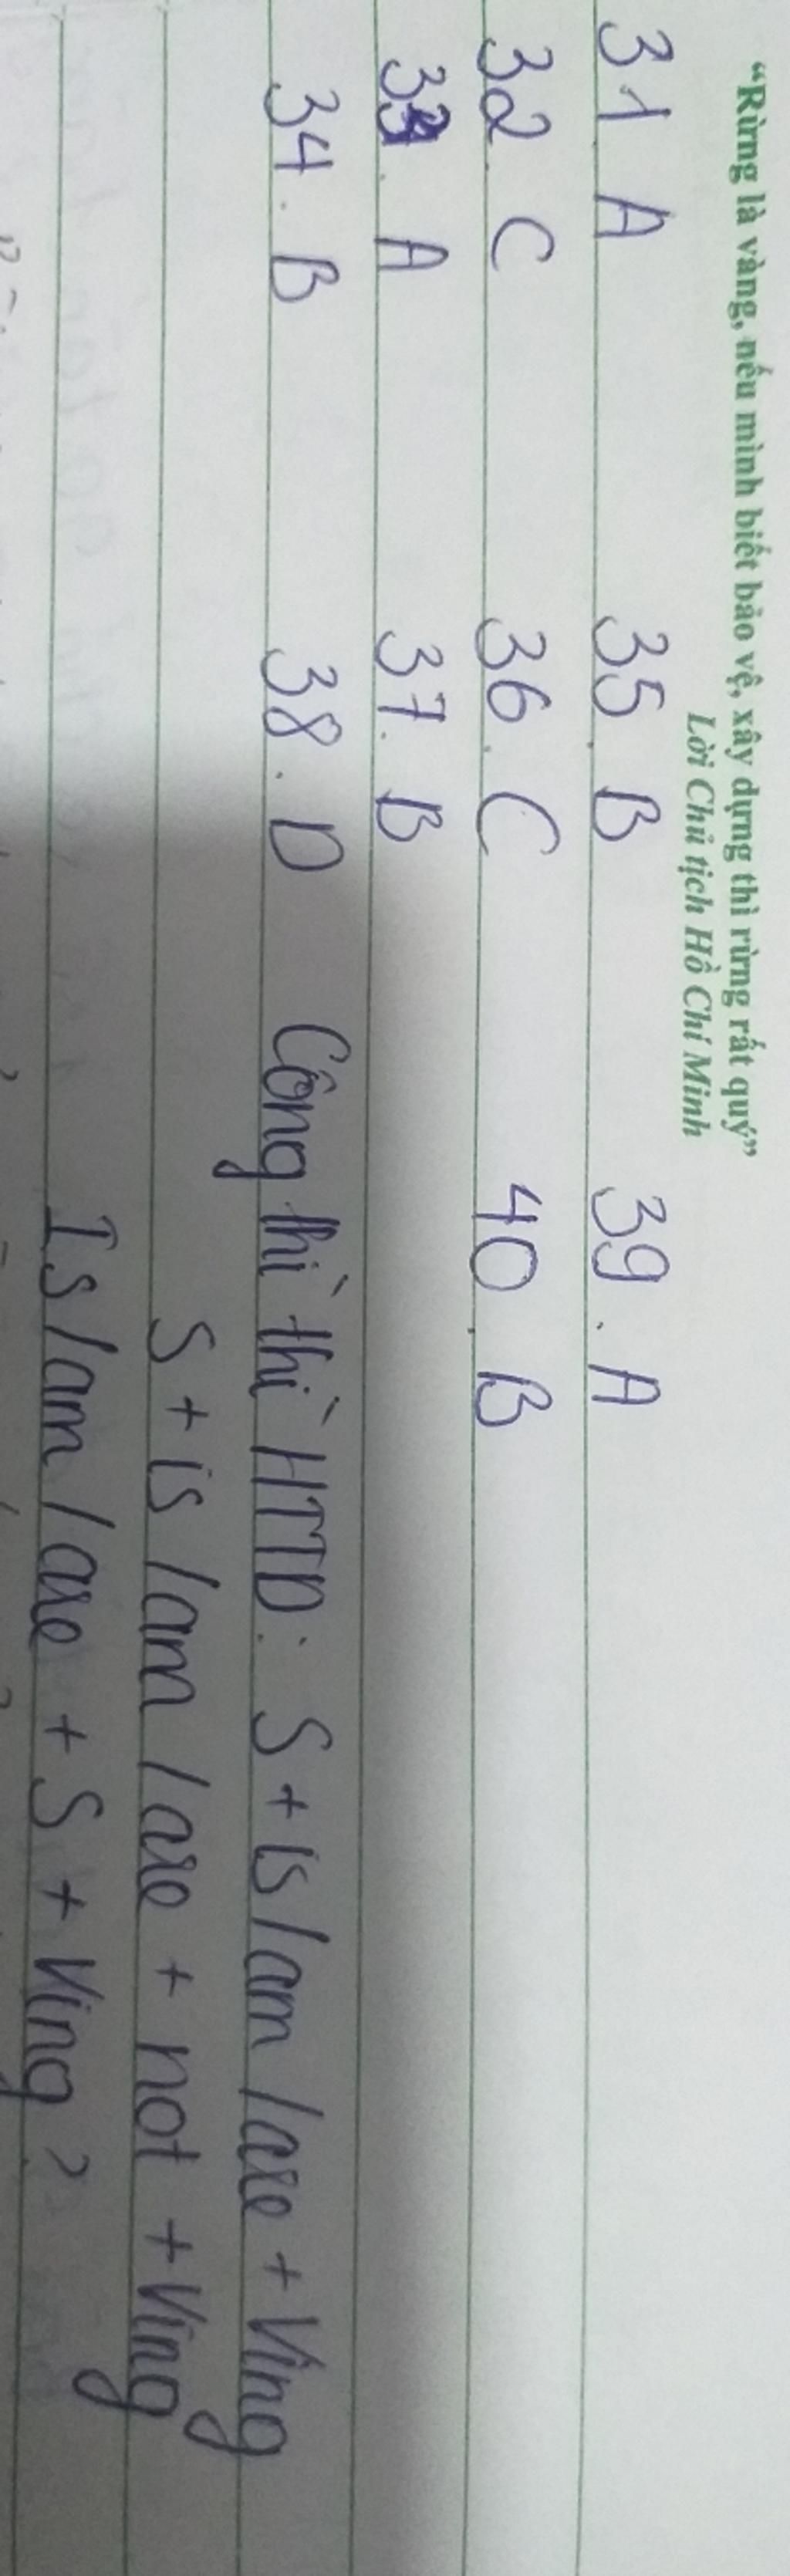 “Rừng là vàng, nếu mình biết bảo vệ, xây dựng thì rừng rất quý”
Lời Chủ tịch Hồ Chí Minh
31. A 35. B 39. A
32. C 36. C 40. B
33. A 37. B
34. B 38. D Công thì thì HTTD: S + is / am / are + Ving
S + is / am / are + not + Ving
Is / am / are + S + Ving ?